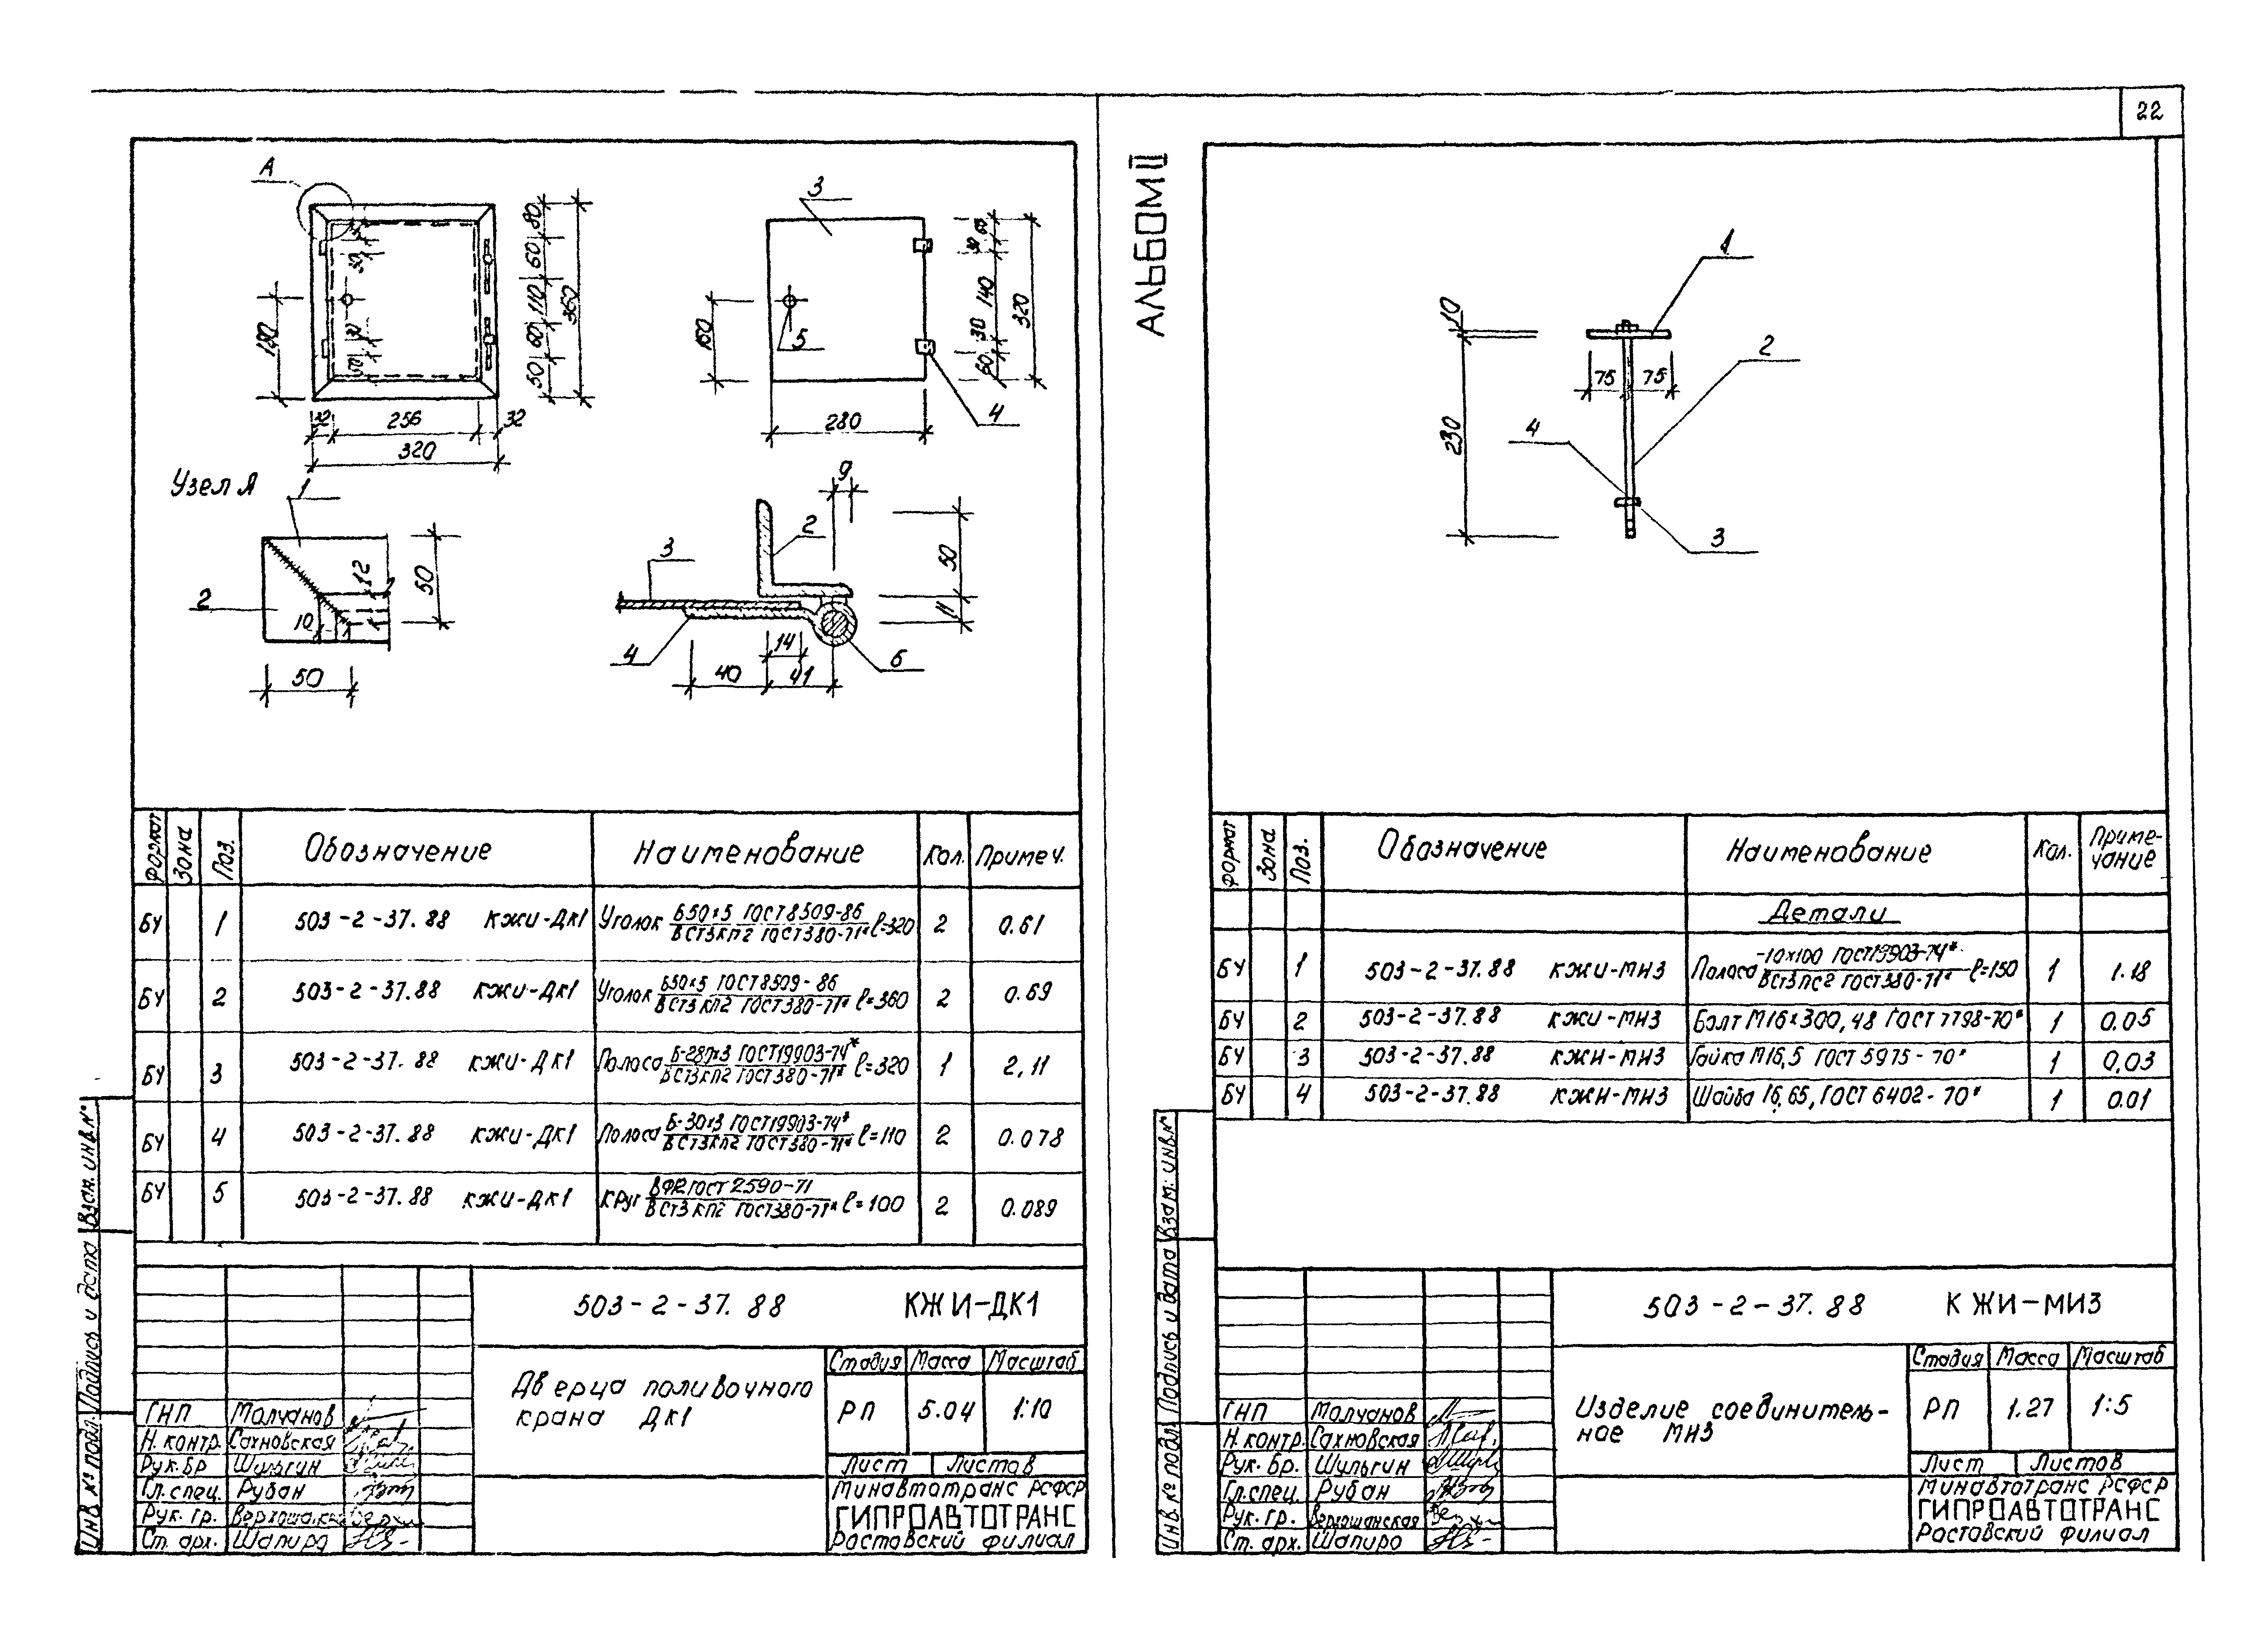 22
АЛЬБОМ II
А
80
60
110
60
50
360
180
30
30
50
32
256
32
320
3
60
30
140
30
60
320
160
5
4
280
Узел А
1
2
12
10
50
50
9
2
3
50
11
4
14
40
41
6
Формат Зона Поз. Обозначение Наименование Кол. Примеч.
БЧ 1 503-2-37.88 КЖИ-ДК1 Уголок Б50×5 ГОСТ 8509-86 / ВСт3КП2 ГОСТ 380-71* ℓ=320 2 0.61
БЧ 2 503-2-37.88 КЖИ-ДК1 Уголок Б50×5 ГОСТ 8509-86 / ВСт3КП2 ГОСТ 380-71* ℓ=360 2 0.69
БЧ 3 503-2-37.88 КЖИ-ДК1 Полоса Б-280×3 ГОСТ 19903-74* / ВСт3КП2 ГОСТ 380-71* ℓ=320 1 2,11
БЧ 4 503-2-37.88 КЖИ-ДК1 Полоса Б-30×3 ГОСТ 19903-74* / ВСт3КП2 ГОСТ 380-71* ℓ=110 2 0.078
БЧ 5 503-2-37.88 КЖИ-ДК1 Круг ГОСТ 2590-71 / ВСт3КП2 ГОСТ 380-71* ℓ=100 2 0.089
503-2-37.88 КЖИ-ДК1
Дверца поливочного
крана ДК1
Стадия Масса Масштаб
РП 5.04 1:10
Лист Листов
Минавтотранс РСФСР
ГИПРОАВТОТРАНС
Ростовский филиал
ГНП Молчанов
Н. контр. Сахновская
Рук. бр Шульгин
Гл. спец. Рубан
Рук. гр.
Ст. арх. Шапиро
Инв. № подл. Подпись и дата Взам. инв. №
10
1
2
75 75
230
4
3
Формат Зона Поз. Обозначение Наименование Кол. Приме-
чание
Детали
БЧ 1 503-2-37.88 КЖИ-МИ3 Полоса -10×100 ГОСТ 19903-74* / ВСт3ПС2 ГОСТ 380-71* ℓ=150 1 1.18
БЧ 2 503-2-37.88 КЖИ-МИ3 Болт М16×300,48 ГОСТ 7798-70* 1 0.05
БЧ 3 503-2-37.88 КЖИ-МИ3 Гайка М16,5 ГОСТ 5975-70* 1 0,03
БЧ 4 503-2-37.88 КЖИ-МИ3 Шайба 16,65, ГОСТ 6402-70* 1 0.01
503-2-37.88 КЖИ-МИ3
Изделие соединитель-
ное МИ3
Стадия Масса Масштаб
РП 1.27 1:5
Лист Листов
Минавтотранс РСФСР
ГИПРОАВТОТРАНС
Ростовский филиал
ГНП Молчанов
Н. контр. Сахновская
Рук. бр. Шульгин
Гл. спец. Рубан
Рук. гр. Верхошанская
Ст. арх. Шапиро
Инв. № подл. Подпись и дата Взам. инв. №